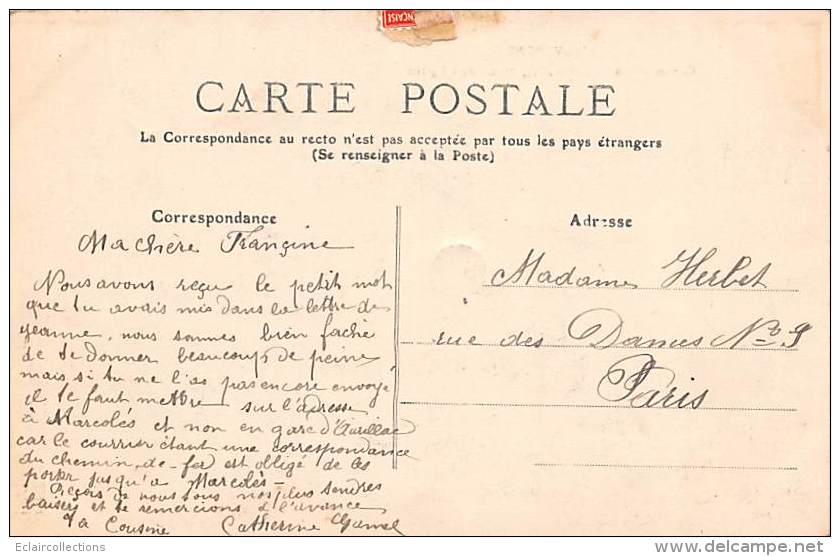 NÇAISE
CARTE POSTALE
La Correspondance au recto n'est pas acceptée par tous les pays étrangers
(Se renseigner à la Poste)
Correspondance
Ma chère Françine
Nous avons reçu le petit mot
que tu avais mis dans la lettre de
Jeanne, nous sommes bien faché
de te donner beaucoup de peine
mais si tu ne l'as pas encore envoyé
il te faut mettre sur l'adresse
à Marcolés et non en gare d'Aurillac
car le courrier étant une correspondance
du chemin-de-fer est obligé de les
porter jusqu'a Marcolès-
Reçois de nous tous nos plus tendres
baisers et te remercions d'avance
Ta Cousine Catherine
Adresse
Madame Herbet
rue des Dames No 9
Paris
Eclaircollections
delcampe.net